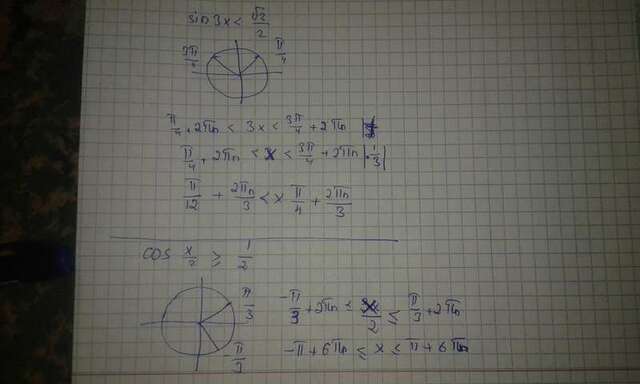 sin 3x < √2/2
3π/4 π/4
π/4 + 2πn < 3x < 3π/4 + 2πn
π/4 + 2πn < x < 3π/4 + 2πn |·1/3|
π/12 + 2πn/3 < x π/4 + 2πn/3
cos x/2 ≥ 1/2
π/3
-π/3
-π/3 + 2πn ≤ x/2 ≤ π/3 + 2πn
-π + 6πn ≤ x ≤ π + 6πn